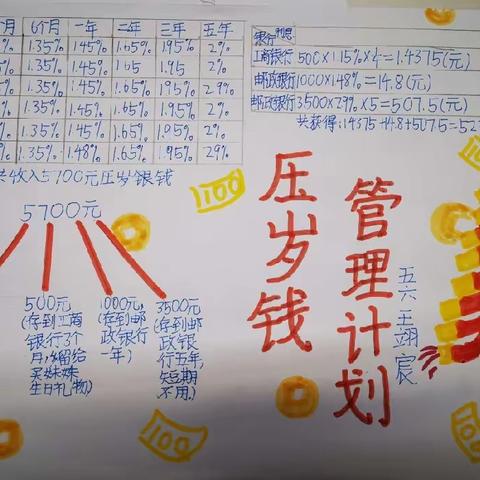 个月 6个月 一年 二年 三年 五年
% 1.35% 1.45% 1.65% 1.95% 2%
% 1.35% 1.45% 1.65 1.95 2%
% 1.35% 1.45% 1.65% 1.95% 2.9%
% 1.35% 1.45% 1.65% 1.95% 2%
% 1.35% 1.45% 1.65% 1.95% 2%
% 1.35% 1.48% 1.65% 1.95% 2.9%
共收入5700元压岁银钱
5700元
500元
(存到工商
银行3个
月,留给
买妹妹
生日礼物)
1000元,
(存到邮
政银行
一年)
3500元
(存到邮
政银
行五年,
短期
不用.)
银行 利息
工商银行 500×1.15%×4=1.4375(元)
邮政银行 1000×1.48%=14.8(元)
邮政银行 3500×2.9%×5=507.5(元)
共获得:1.4375+14.8+507.5=52
压岁钱
管理计划
五六王翊宸
100
100
100
100